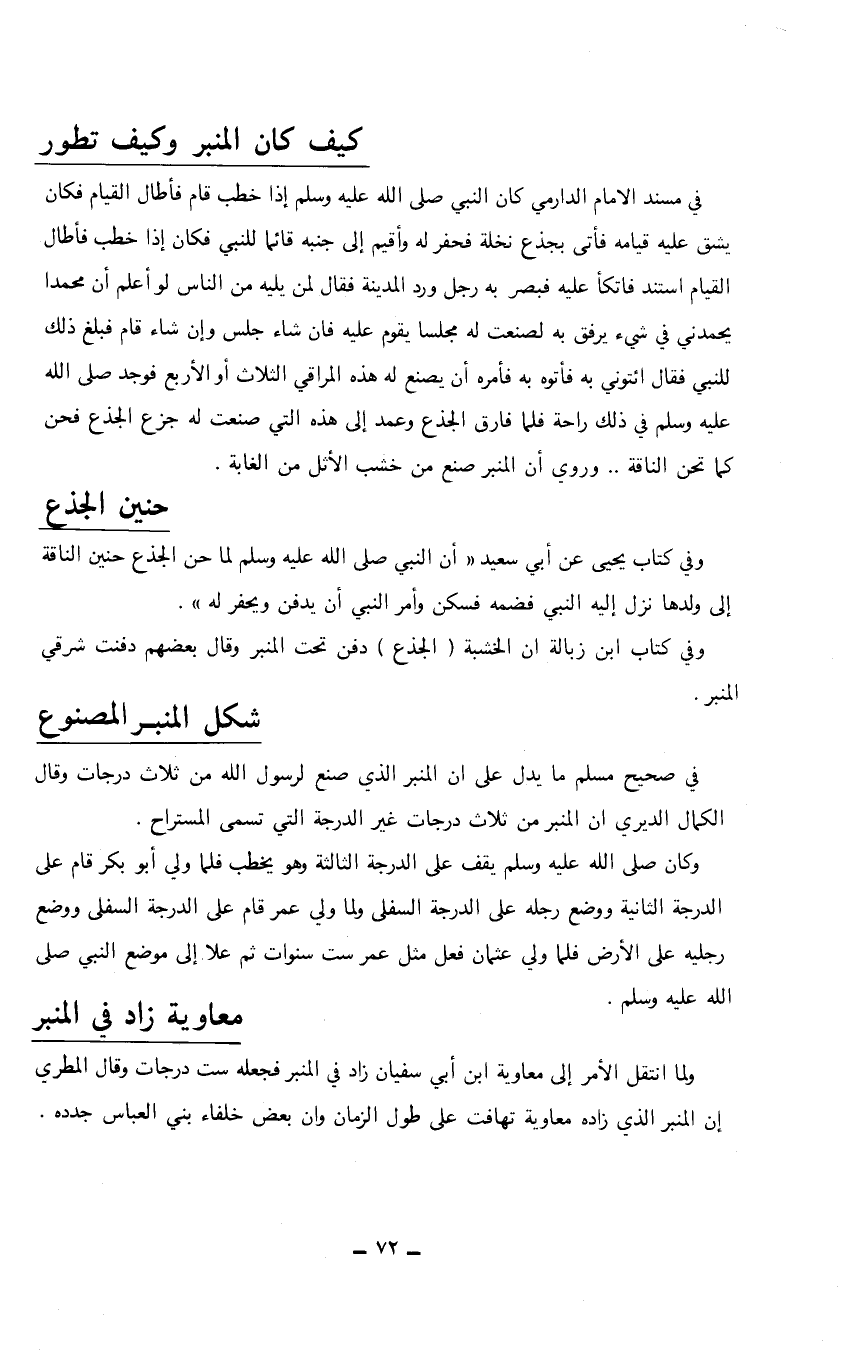 كيف كان المنبر وكيف تطور
في مسند الامام الدارمي كان النبي صلى الله عليه وسلم إذا خطب قام فأطال القيام فكان
يشق عليه قيامه فأتى بجذع نخلة فحفر له وأقيم إلى جنبه قائما للنبي فكان إذا خطب فأطال
القيام استند فاتكأ عليه فبصر به رجل ورد المدينة فقال لمن يليه من الناس لو أعلم أن محمدا
يحمدني في شيء يرفق به لصنعت له مجلسا يقوم عليه فان شاء جلس وإن شاء قام فبلغ ذلك
للنبي فقال ائتوني به فأتوه به فأمره أن يصنع له هذه المراقي الثلاث أو الأربع فوجد صلى الله
عليه وسلم في ذلك راحة فلما فارق الجذع وعمد إلى هذه التي صنعت له جزع الجذع فحن
كما تحن الناقة .. وروي أن المنبر صنع من خشب الأثل من الغابة .
حنين الجذع
وفي كتاب يحيى عن أبي سعيد « أن النبي صلى الله عليه وسلم لما حن الجذع حنين الناقة
إلى ولدها نزل إليه النبي فضمه فسكن وأمر النبي أن يدفن ويحفر له » .
وفي كتاب ابن زبالة ان الخشبة ( الجذع ) دفن تحت المنبر وقال بعضهم دفنت شرقي
المنبر .
شكل المنبر المصنوع
في صحيح مسلم ما يدل على ان المنبر الذي صنع لرسول الله من ثلاث درجات وقال
الكمال الديري ان المنبر من ثلاث درجات غير الدرجة التي تسمى المستراح .
وكان صلى الله عليه وسلم يقف على الدرجة الثالثة وهو يخطب فلما ولي أبو بكر قام على
الدرجة الثانية ووضع رجله على الدرجة السفلى ولما ولي عمر قام على الدرجة السفلى ووضع
رجليه على الأرض فلما ولي عثمان فعل مثل عمر ست سنوات ثم علا إلى موضع النبي صلى
الله عليه وسلم .
معاوية زاد في المنبر
ولما انتقل الأمر إلى معاوية ابن أبي سفيان زاد في المنبر فجعله ست درجات وقال المطري
إن المنبر الذي زاده معاوية تهافت على طول الزمان وان بعض خلفاء بني العباس جدده .
ـ ٧٢ ـ